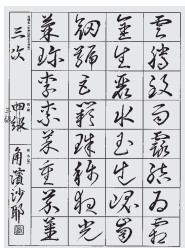 雲騰致雨露結為霜
金生麗水玉出崐崗
劍號巨闕珠稱夜光
菓珍李柰菜重芥薑
三次
角濱沙耶